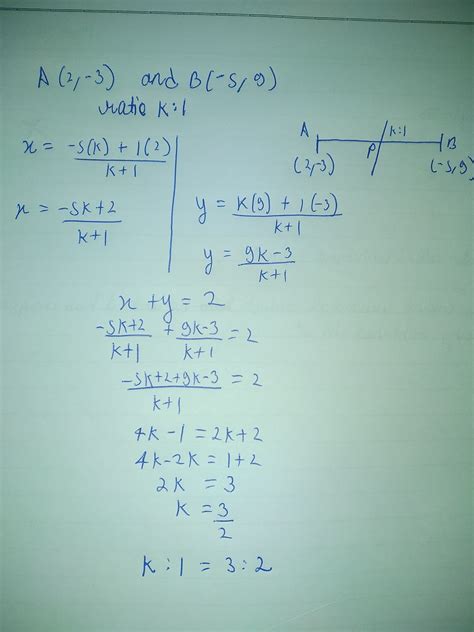 A(2,-3) and B(-5,9)
ratio k:1
x = -5(k) + 1(2) / k+1
A k:1 B
P
(2,-3) (-5,9)
x = -5k+2 / k+1
y = k(9) + 1(-3) / k+1
y = 9k-3 / k+1
x + y = 2
-5k+2 / k+1 + 9k-3 / k+1 = 2
-5k+2+9k-3 / k+1 = 2
4k-1 = 2k+2
4k-2k = 1+2
2k = 3
k = 3/2
k:1 = 3:2